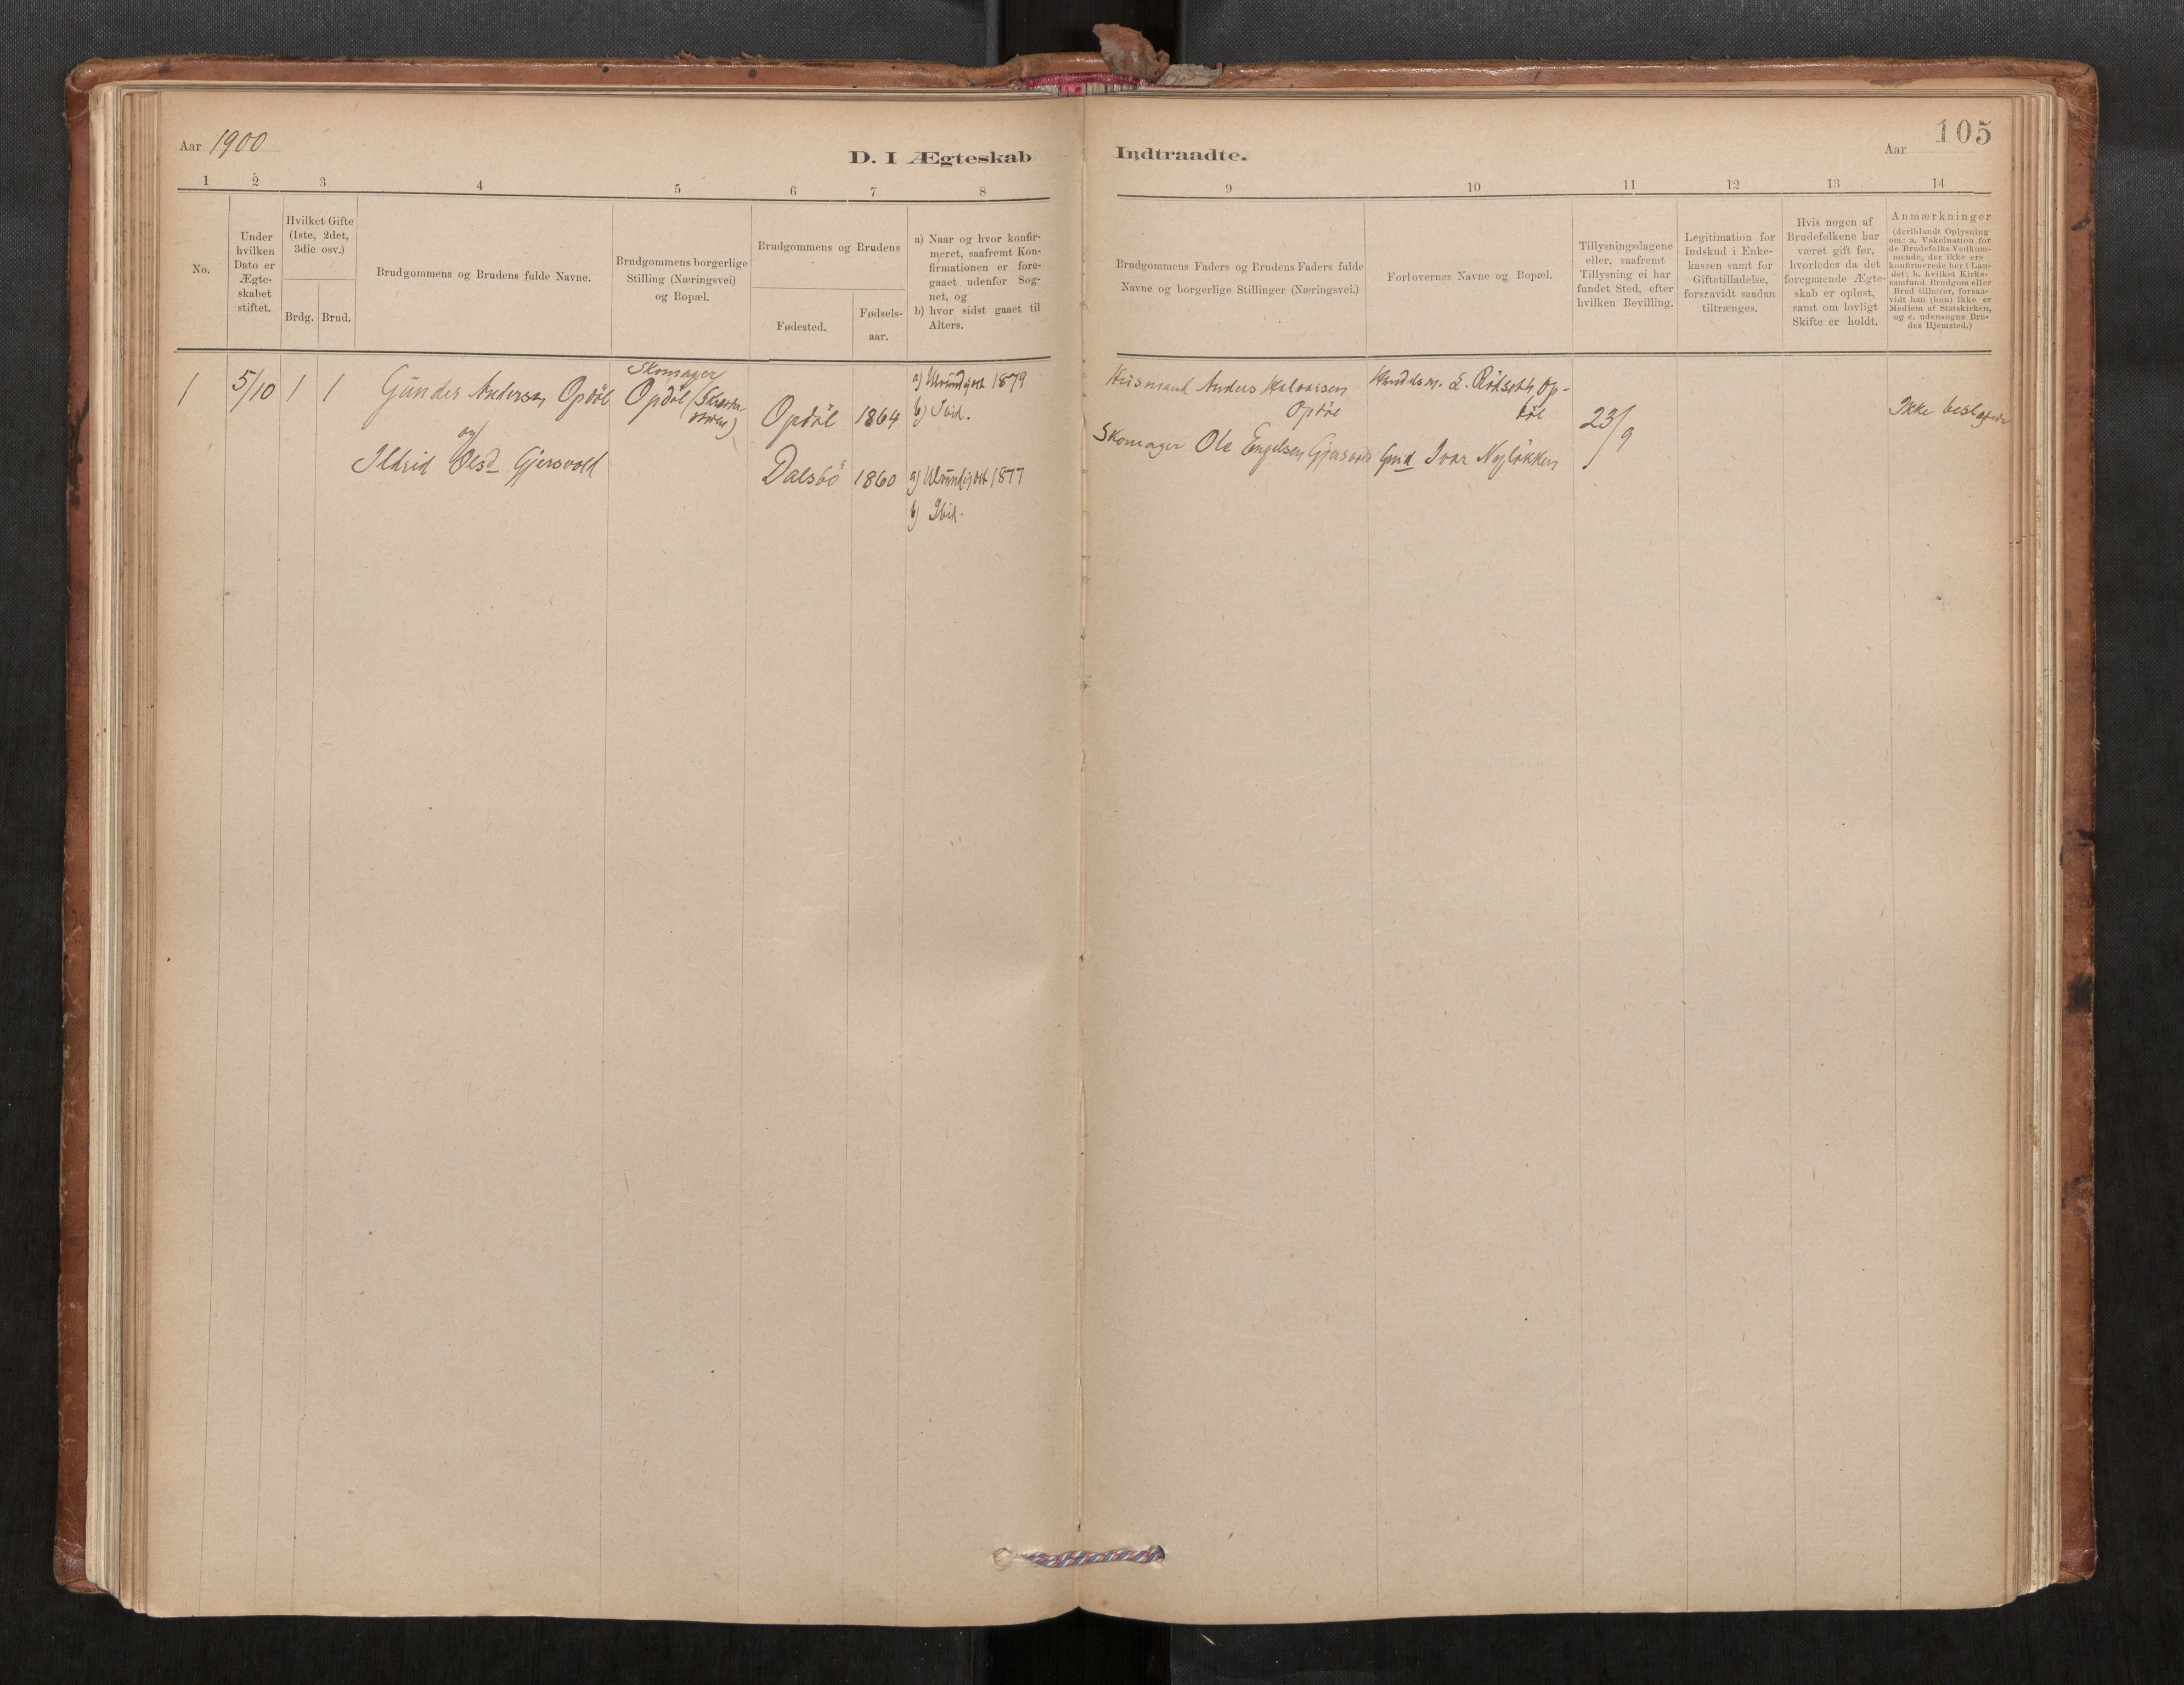 Aar 1900
D. I Ægteskab
1 2 3 4 5 6 7 8
No.
Under
hvilken
Dato er
Ægte-
skabet
stiftet.
Hvilket Gifte
(1ste, 2det,
3die osv.)
Brdg. Brud.
Brudgommens og Brudens fulde Navne.
Brudgommens borgerlige
Stilling (Næringsvei)
og Bopæl.
Brudgommens og Brudens
Fødested.
Fødsels-
aar.
a) Naar og hvor konfir-
meret, saafremt Kon-
firmationen er fore-
gaaet udenfor Sog-
net, og
b) hvor sidst gaaet til
Alters.
1 5/10 1 1
Gunder Andersen Opdöl
og
Ildrid Olsd Gjersvold
Skomager
Opdöl
Opdöl 1864
a) 1879
b) Ibid.
Dalsbö 1860
a) 1877
b) Ibid.
105
Indtraadte.
Aar
9 10 11 12 13 14
Brudgommens Faders og Brudens Faders fulde
Navne og borgerlige Stillinger (Næringsvei.)
Forlovernes Navne og Bopæl.
Tillysningsdagene
eller, saafremt
Tillysning ei har
fundet Sted, efter
hvilken Bevilling.
Legitimation for
Indskud i Enke-
kassen samt for
Giftetilladelse,
forsaavidt saadan
tiltrænges.
Hvis nogen af
Brudefolkene har
været gift før,
hvorledes da det
foregaaende Ægte-
skab er opløst,
samt om lovligt
Skifte er holdt.
Anmærkninger
(deriblandt Oplysning
om: a. Vakcination for
de Brudefolks Vedkom-
mende, der ikke ere
konfirmerede her i Lan-
det; b. hvilket Kirke-
samfund Brudgom eller
Brud tilhører, forsaa-
vidt han (hun) ikke er
Medlem af Statskirken,
og c. udensogns Bru-
des Hjemsted.)
Husmand Anders Halvorsen
Opdöl
Skomager Ole Engelsen Gjersvold
L. Rödseth Op-
döl
Gmd Ivar Nylökken
23/9
Ikke